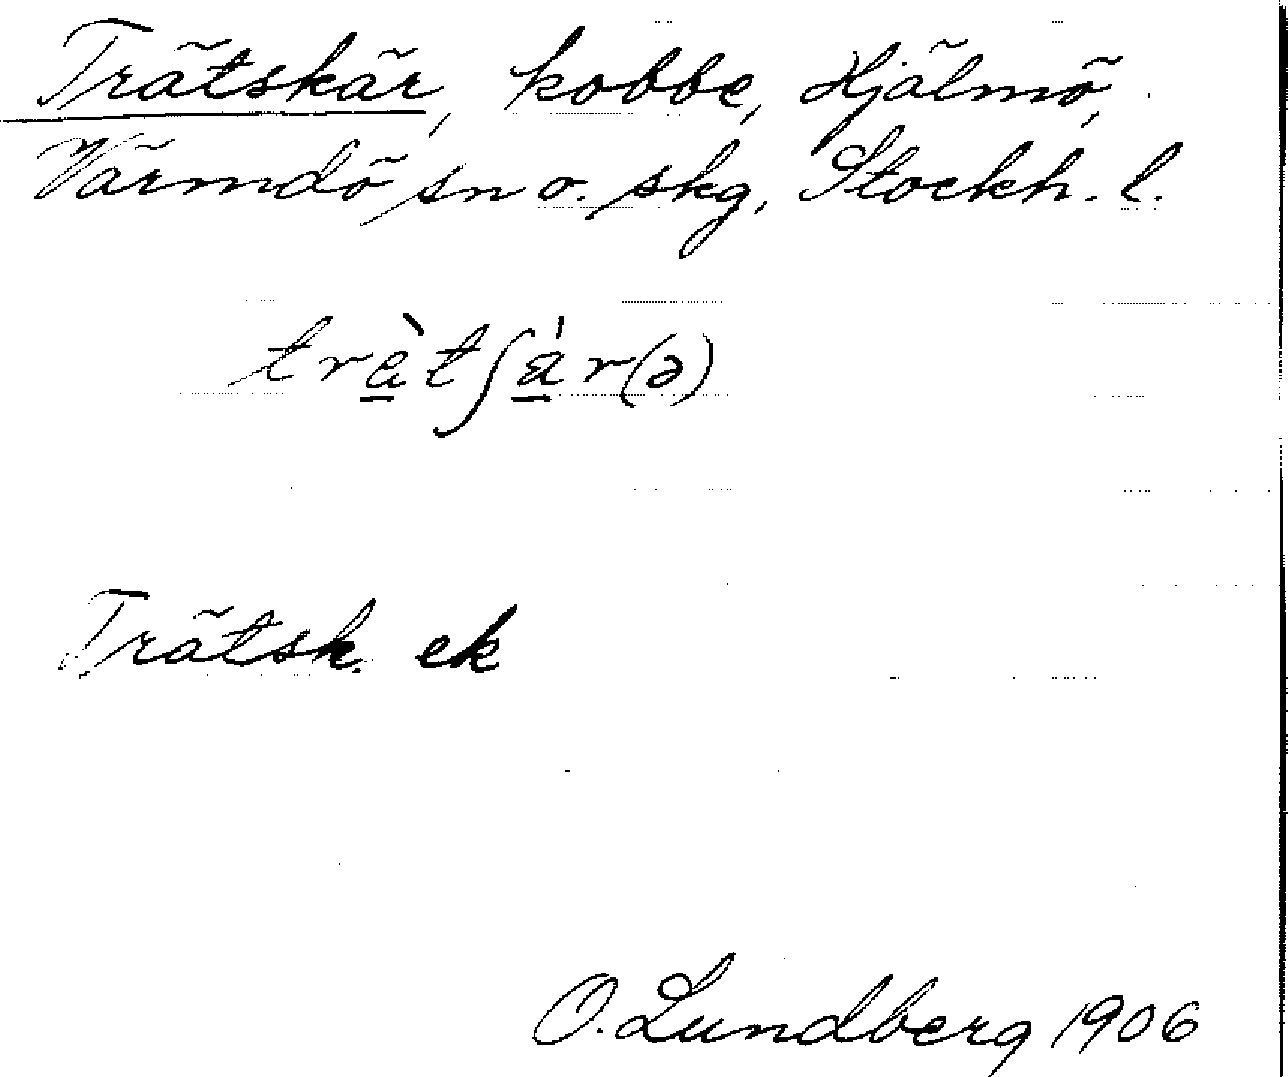 Trätskär, kobbe, Hjälmö,
Värmdö sn o. skg, Stockh. l.
trè̠tʃǽ̠r(ə)
Trätsk. ek
O. Lundberg 1906